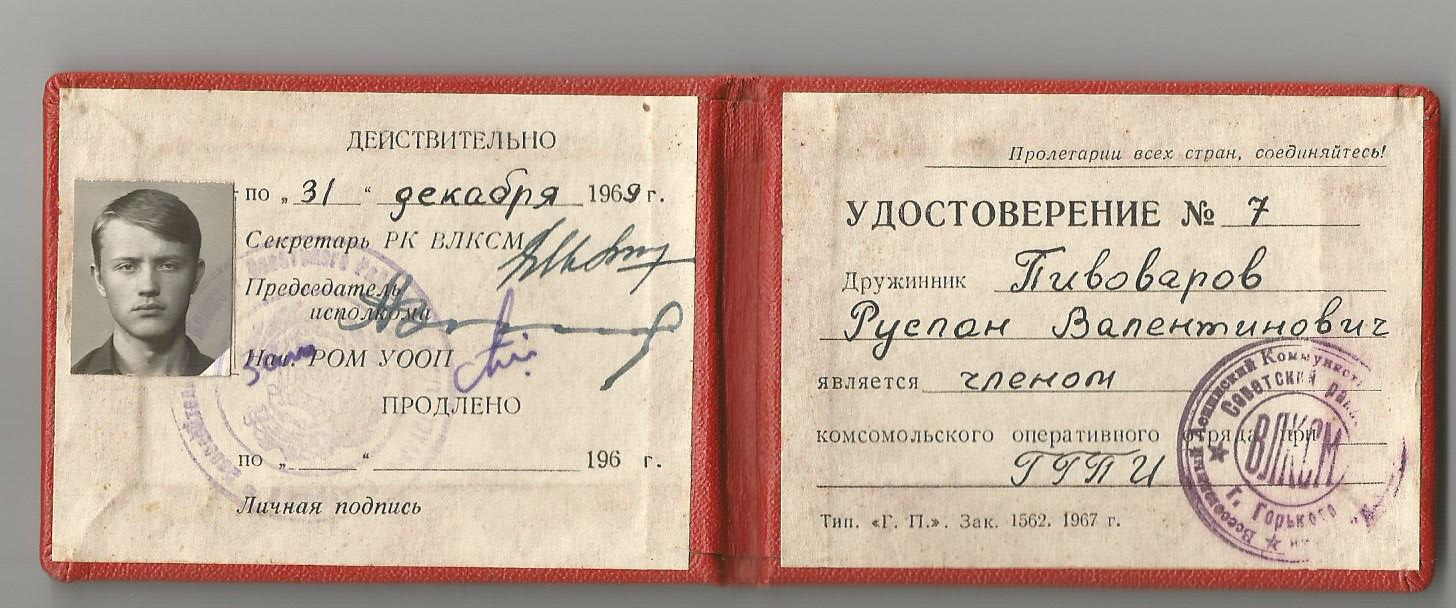 ДЕЙСТВИТЕЛЬНО
по „ 31 “ декабря 1969 г.
Секретарь РК ВЛКСМ
Председатель
исполкома
Нач. РОМ УООП
ПРОДЛЕНО
по „ “ 196 г.
Личная подпись
Пролетарии всех стран, соединяйтесь!
УДОСТОВЕРЕНИЕ № 7
Дружинник Пивоваров
Руслан Валентинович
является членом
комсомольского оперативного отряда при
ГГПИ
Тип. «Г. П.». Зак. 1562. 1967 г.
Всесоюзный Ленинский Коммунист
Советский рай
ВЛКСМ
г. Горького